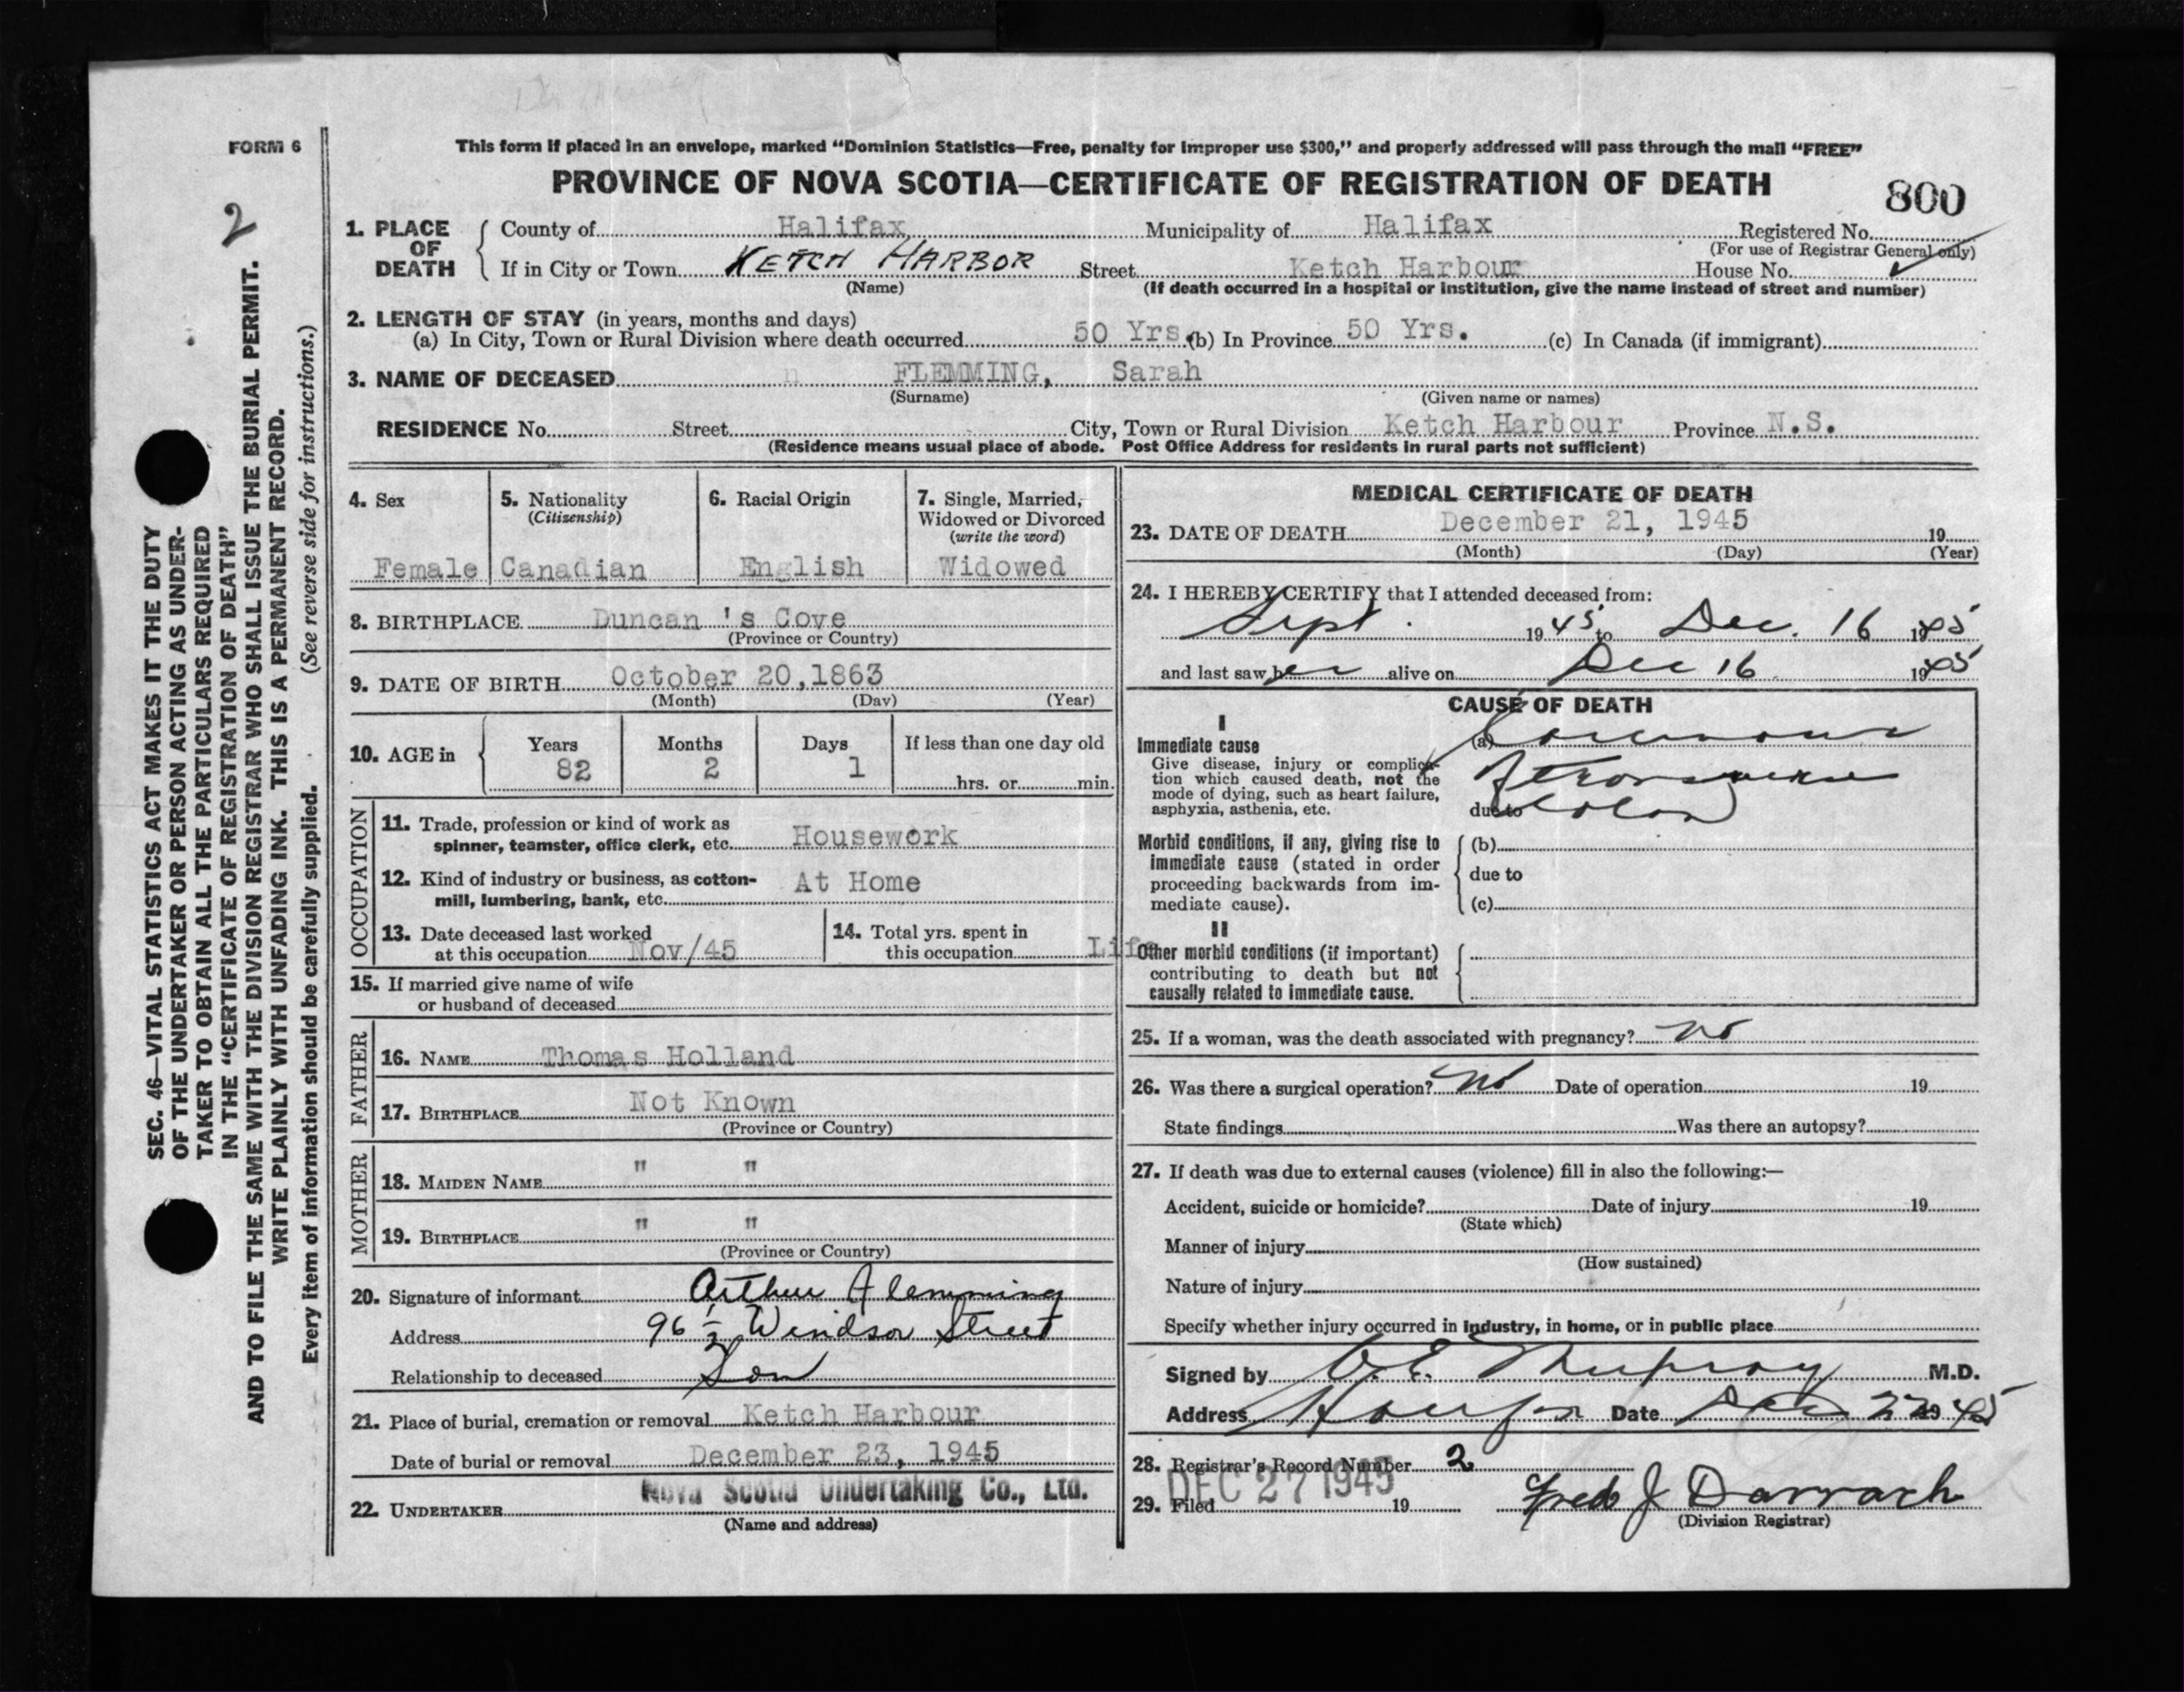 FORM 6
2
This form if placed in an envelope, marked "Dominion Statistics—Free, penalty for improper use $300," and properly addressed will pass through the mail "FREE"
PROVINCE OF NOVA SCOTIA—CERTIFICATE OF REGISTRATION OF DEATH
800
1. PLACE OF DEATH
County of Halifax Municipality of Halifax Registered No.
(For use of Registrar General only)
If in City or Town KETCH HARBOR Street Ketch Harbour House No.
(Name) (If death occurred in a hospital or institution, give the name instead of street and number)
2. LENGTH OF STAY (in years, months and days)
(a) In City, Town or Rural Division where death occurred 50 Yrs. (b) In Province 50 Yrs. (c) In Canada (if immigrant)
3. NAME OF DECEASED FLEMMING, Sarah
(Surname) (Given name or names)
RESIDENCE No. Street City, Town or Rural Division Ketch Harbour Province N.S.
(Residence means usual place of abode. Post Office Address for residents in rural parts not sufficient)
4. Sex
Female
5. Nationality
(Citizenship)
Canadian
6. Racial Origin
English
7. Single, Married,
Widowed or Divorced
(write the word)
Widowed
8. BIRTHPLACE Duncan 's Cove
(Province or Country)
9. DATE OF BIRTH October 20,1863
(Month) (Day) (Year)
10. AGE in
Years Months Days If less than one day old
82 2 1 hrs. or min.
OCCUPATION
11. Trade, profession or kind of work as
spinner, teamster, office clerk, etc. Housework
12. Kind of industry or business, as cotton-
mill, lumbering, bank, etc. At Home
13. Date deceased last worked
at this occupation Nov/45
14. Total yrs. spent in
this occupation Life
15. If married give name of wife
or husband of deceased
FATHER
16. NAME Thomas Holland
17. BIRTHPLACE Not Known
(Province or Country)
MOTHER
18. MAIDEN NAME " "
19. BIRTHPLACE " "
(Province or Country)
20. Signature of informant Arthur Flemming
Address 96 1/2 Windsor Street
Relationship to deceased Son
21. Place of burial, cremation or removal Ketch Harbour
Date of burial or removal December 23, 1945
22. UNDERTAKER Nova Scotia Undertaking Co., Ltd.
(Name and address)
MEDICAL CERTIFICATE OF DEATH
23. DATE OF DEATH December 21, 1945 19
(Month) (Day) (Year)
24. I HEREBY CERTIFY that I attended deceased from:
Sept. 1945 to Dec. 16 1945
and last saw her alive on Dec 16 1945
CAUSE OF DEATH
I
Immediate cause
Give disease, injury or complica-
tion which caused death, not the
mode of dying, such as heart failure,
asphyxia, asthenia, etc.
(a) Carcinoma
of transverse
due to colon
Morbid conditions, if any, giving rise to
immediate cause (stated in order
proceeding backwards from im-
mediate cause).
(b)
due to
(c)
II
Other morbid conditions (if important)
contributing to death but not
causally related to immediate cause.
25. If a woman, was the death associated with pregnancy? no
26. Was there a surgical operation? no Date of operation 19
State findings Was there an autopsy?
27. If death was due to external causes (violence) fill in also the following:—
Accident, suicide or homicide? Date of injury 19
(State which)
Manner of injury
(How sustained)
Nature of injury
Specify whether injury occurred in industry, in home, or in public place
Signed by M.D.
Address Date Dec 22 1945
28. Registrar's Record Number 2
29. Filed DEC 27 1945 19 Fred J Darrach
(Division Registrar)
SEC. 46—VITAL STATISTICS ACT MAKES IT THE DUTY
OF THE UNDERTAKER OR PERSON ACTING AS UNDER-
TAKER TO OBTAIN ALL THE PARTICULARS REQUIRED
IN THE "CERTIFICATE OF REGISTRATION OF DEATH"
AND TO FILE THE SAME WITH THE DIVISION REGISTRAR WHO SHALL ISSUE THE BURIAL PERMIT.
WRITE PLAINLY WITH UNFADING INK. THIS IS A PERMANENT RECORD.
Every item of information should be carefully supplied. (See reverse side for instructions.)